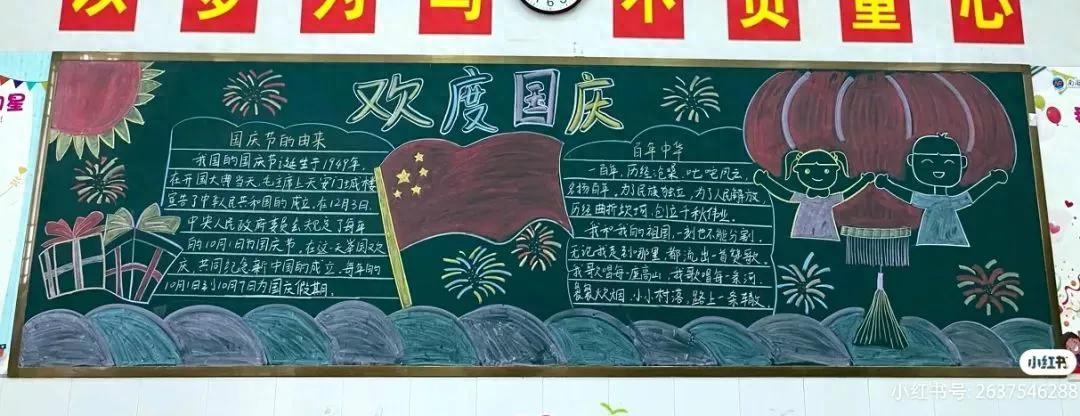 岁 为 与 不 负 童 心
欢度国庆
国庆节的由来
我国的国庆节诞生于1949年,
在开国大典当天,毛主席上天安门城楼
宣告了中华人民共和国的成立,在12月3日,
中央人民政府委员会规定了每年
的10月1日为国庆节,在这一天举国欢
庆,共同纪念新中国的成立,每年的
10月1日到10月7日为国庆假期。
百年中华
一百年,历经沧桑,叱咤风云,
名扬百年,为了民族独立,为了人民解放,
历经曲折坎坷,创立千秋伟业。
我和我的祖国,一刻也不能分割,
无论我走到那里,都流出一首赞歌,
我歌唱每一座高山,我歌唱每一条河,
袅袅炊烟,小小村落,路上一条辙
小红书
小红书号: 2637546288